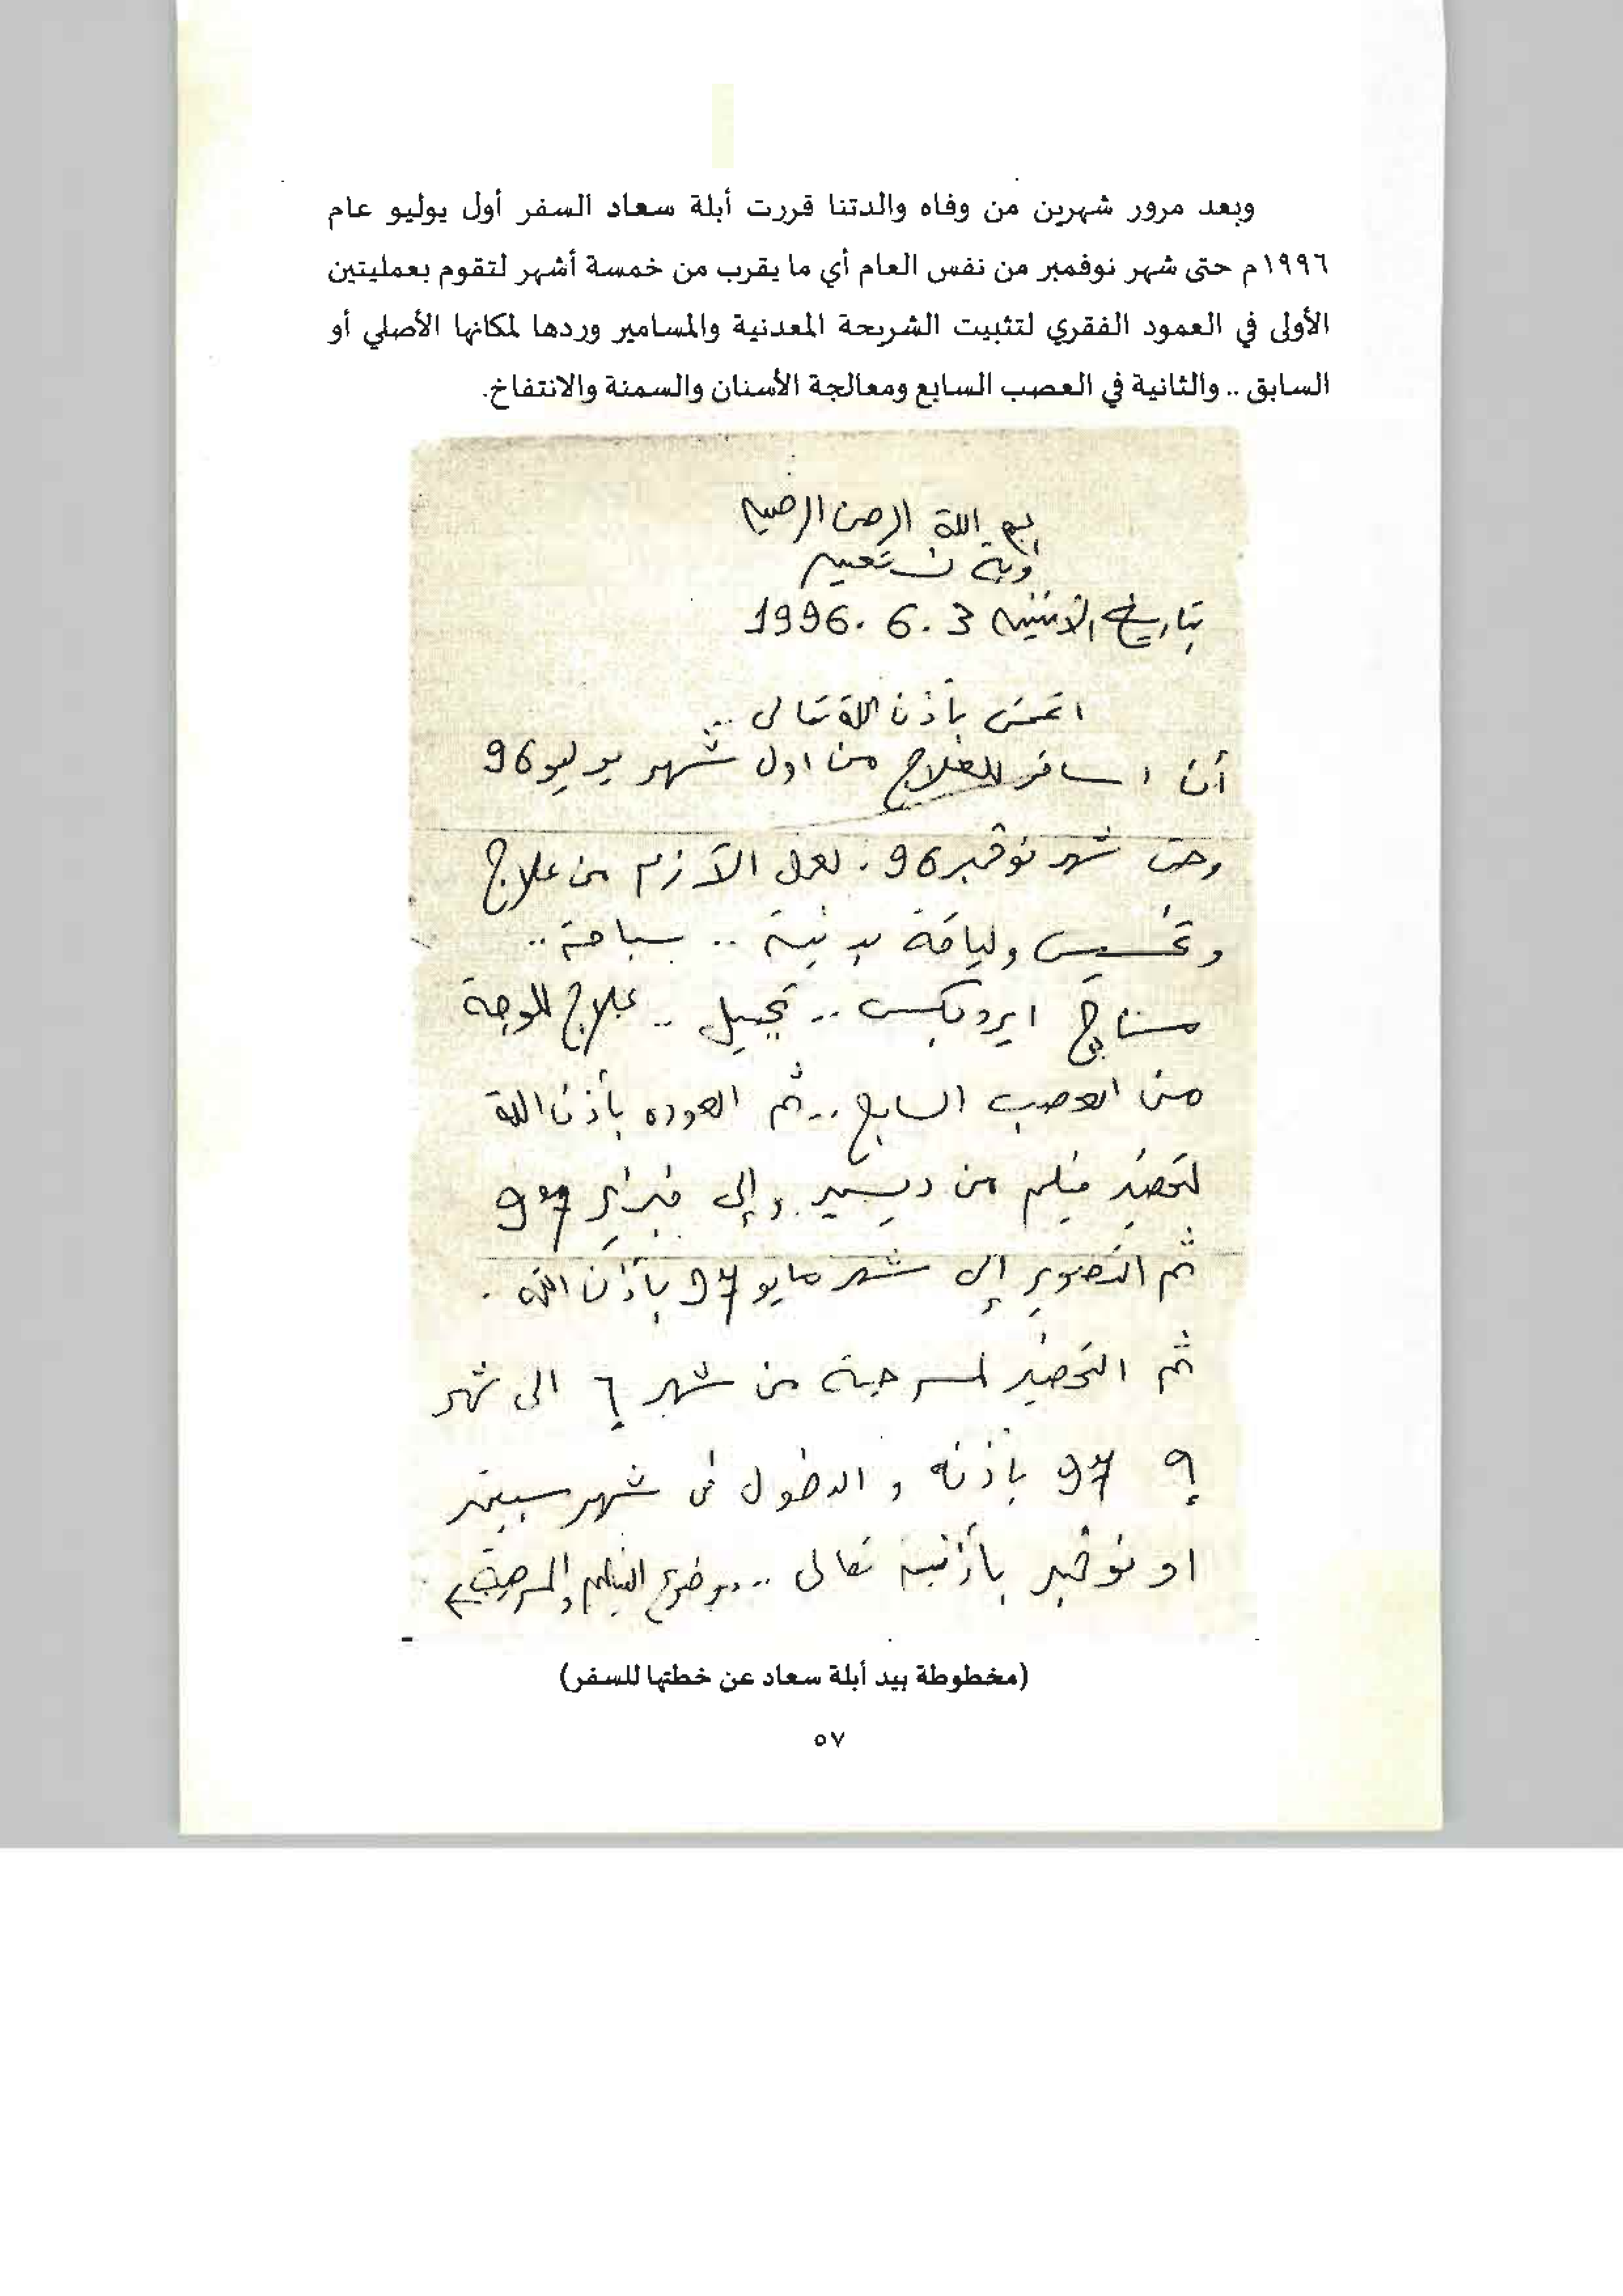 وبعد مرور شهرين من وفاه والدتنا قررت أبلة سعاد السفر أول يوليو عام
١٩٩٦م حتى شهر نوفمبر من نفس العام أي ما يقرب من خمسة أشهر لتقوم بعمليتين
الأولى في العمود الفقري لتثبيت الشريحة المعدنية والمسامير وردها لمكانها الأصلي أو
السابق .. والثانية في العصب السابع ومعالجة الأسنان والسمنة والانتفاخ.
بسم الله الرحمن الرحيم
وبه نستعين
بتاريخ الاثنين 3 .6 .1996
اتمنى بأذن الله تعالى ..
أن اسافر للعلاج من اول شهر يوليو 96
وحتى شهر نوفمبر 96 . لعمل الآزم من علاج
وتخسيس ولياقة بدنية .. سباحة ..
مساج ايروبكس .. تجميل .. علاج للوجة
من العصب السابع .. ثم العوده بأذن اللة
لتحضير فيلم من ديسمبر وإلى فبراير 97
ثم التصوير إلى شهر مايو 97 بأذن الله .
ثم التحضير لمسرحية من شهر ٦ الى شهر
٩ 97 بأذنه و الدخول فى شهر سبتمبر
او نوفمبر بأذنه تعالى .. موضوع الفيلم والمسرحية
(مخطوطة بيد أبلة سعاد عن خطتها للسفر)
٥٧